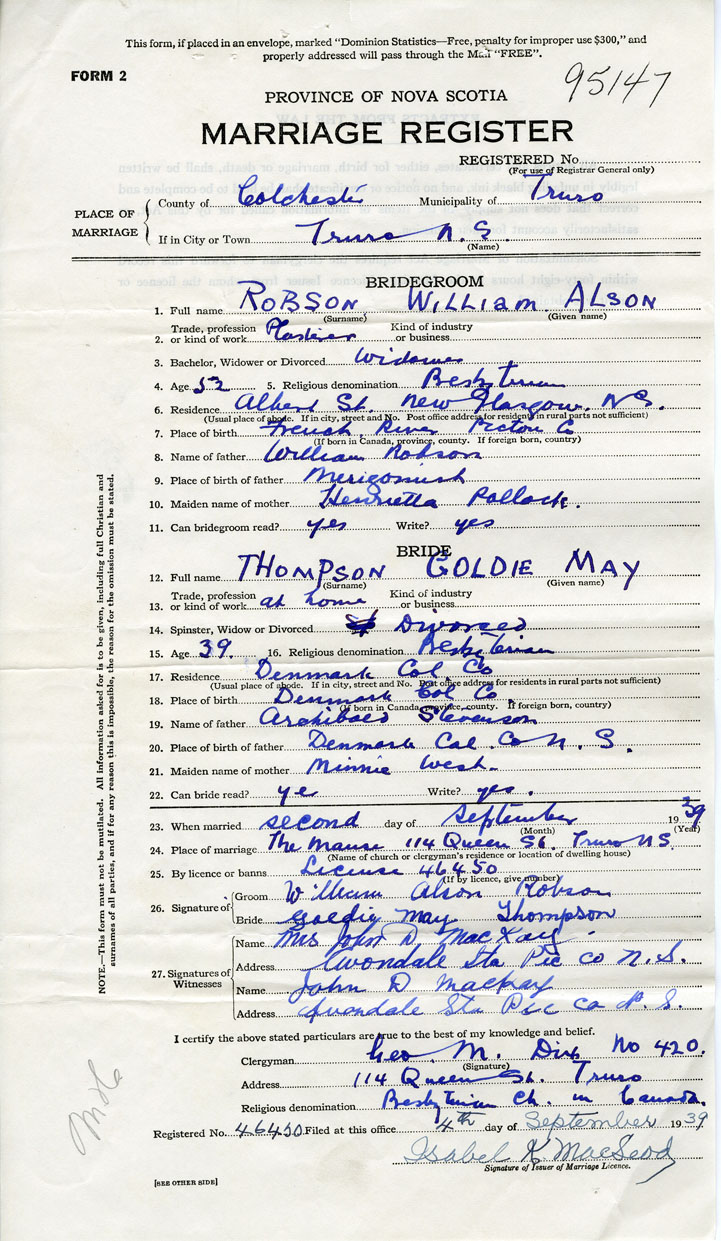 This form, if placed in an envelope, marked "Dominion Statistics—Free, penalty for improper use $300," and
properly addressed will pass through the Mail "FREE".
FORM 2
95147
PROVINCE OF NOVA SCOTIA
MARRIAGE REGISTER
REGISTERED No.
(For use of Registrar General only)
PLACE OF MARRIAGE
County of Colchester Municipality of Truro
If in City or Town Truro N.S.
(Name)
BRIDEGROOM
1. Full name ROBSON WILLIAM ALSON
(Surname) (Given name)
2. Trade, profession or kind of work Plasterer Kind of industry or business
3. Bachelor, Widower or Divorced Widower
4. Age 52 5. Religious denomination Presbyterian
6. Residence Albert St. New Glasgow. N.S.
(Usual place of abode. If in city, street and No. Post office address for residents in rural parts not sufficient)
7. Place of birth French River Pictou Co
(If born in Canada, province, county. If foreign born, country)
8. Name of father William Robson
9. Place of birth of father Merigomish
10. Maiden name of mother Henrietta Pollock.
11. Can bridegroom read? yes Write? yes
BRIDE
12. Full name THOMPSON GOLDIE MAY
(Surname) (Given name)
13. Trade, profession or kind of work at home Kind of industry or business
14. Spinster, Widow or Divorced Divorced
15. Age 39. 16. Religious denomination Presbyterian
17. Residence Denmark Col Co
(Usual place of abode. If in city, street and No. Post office address for residents in rural parts not sufficient)
18. Place of birth Denmark Col Co.
(If born in Canada, province, county. If foreign born, country)
19. Name of father Archibald Stevenson
20. Place of birth of father Denmark Col. Co N. S.
21. Maiden name of mother Minnie West
22. Can bride read? ye Write? yes.
23. When married second day of September 1939
(Month) (Year)
24. Place of marriage The Manse 114 Queen St. Truro N.S.
(Name of church or clergyman's residence or location of dwelling house)
25. By licence or banns License 46450
(If by licence, give number)
26. Signature of
Groom William Alson Robson
Bride Goldie May Thompson
27. Signatures of Witnesses
Name Mrs John D. MacKay
Address Avondale Sta Pic Co N.S.
Name John D Mackay
Address Avondale Sta Pic Co N. S.
I certify the above stated particulars are true to the best of my knowledge and belief.
Clergyman Geo. M. Dix No 420.
(Signature)
Address 114 Queen St. Truro
Religious denomination Presbyterian Ch. in Canada.
Registered No. 46450 Filed at this office 4th day of September 1939
Isabel K MacLeod
Signature of Issuer of Marriage Licence.
[SEE OTHER SIDE]
NOTE.—This form must not be mutilated. All information asked for is to be given, including full Christian and
surnames of all parties, and if for any reason this is impossible, the reason for the omission must be stated.